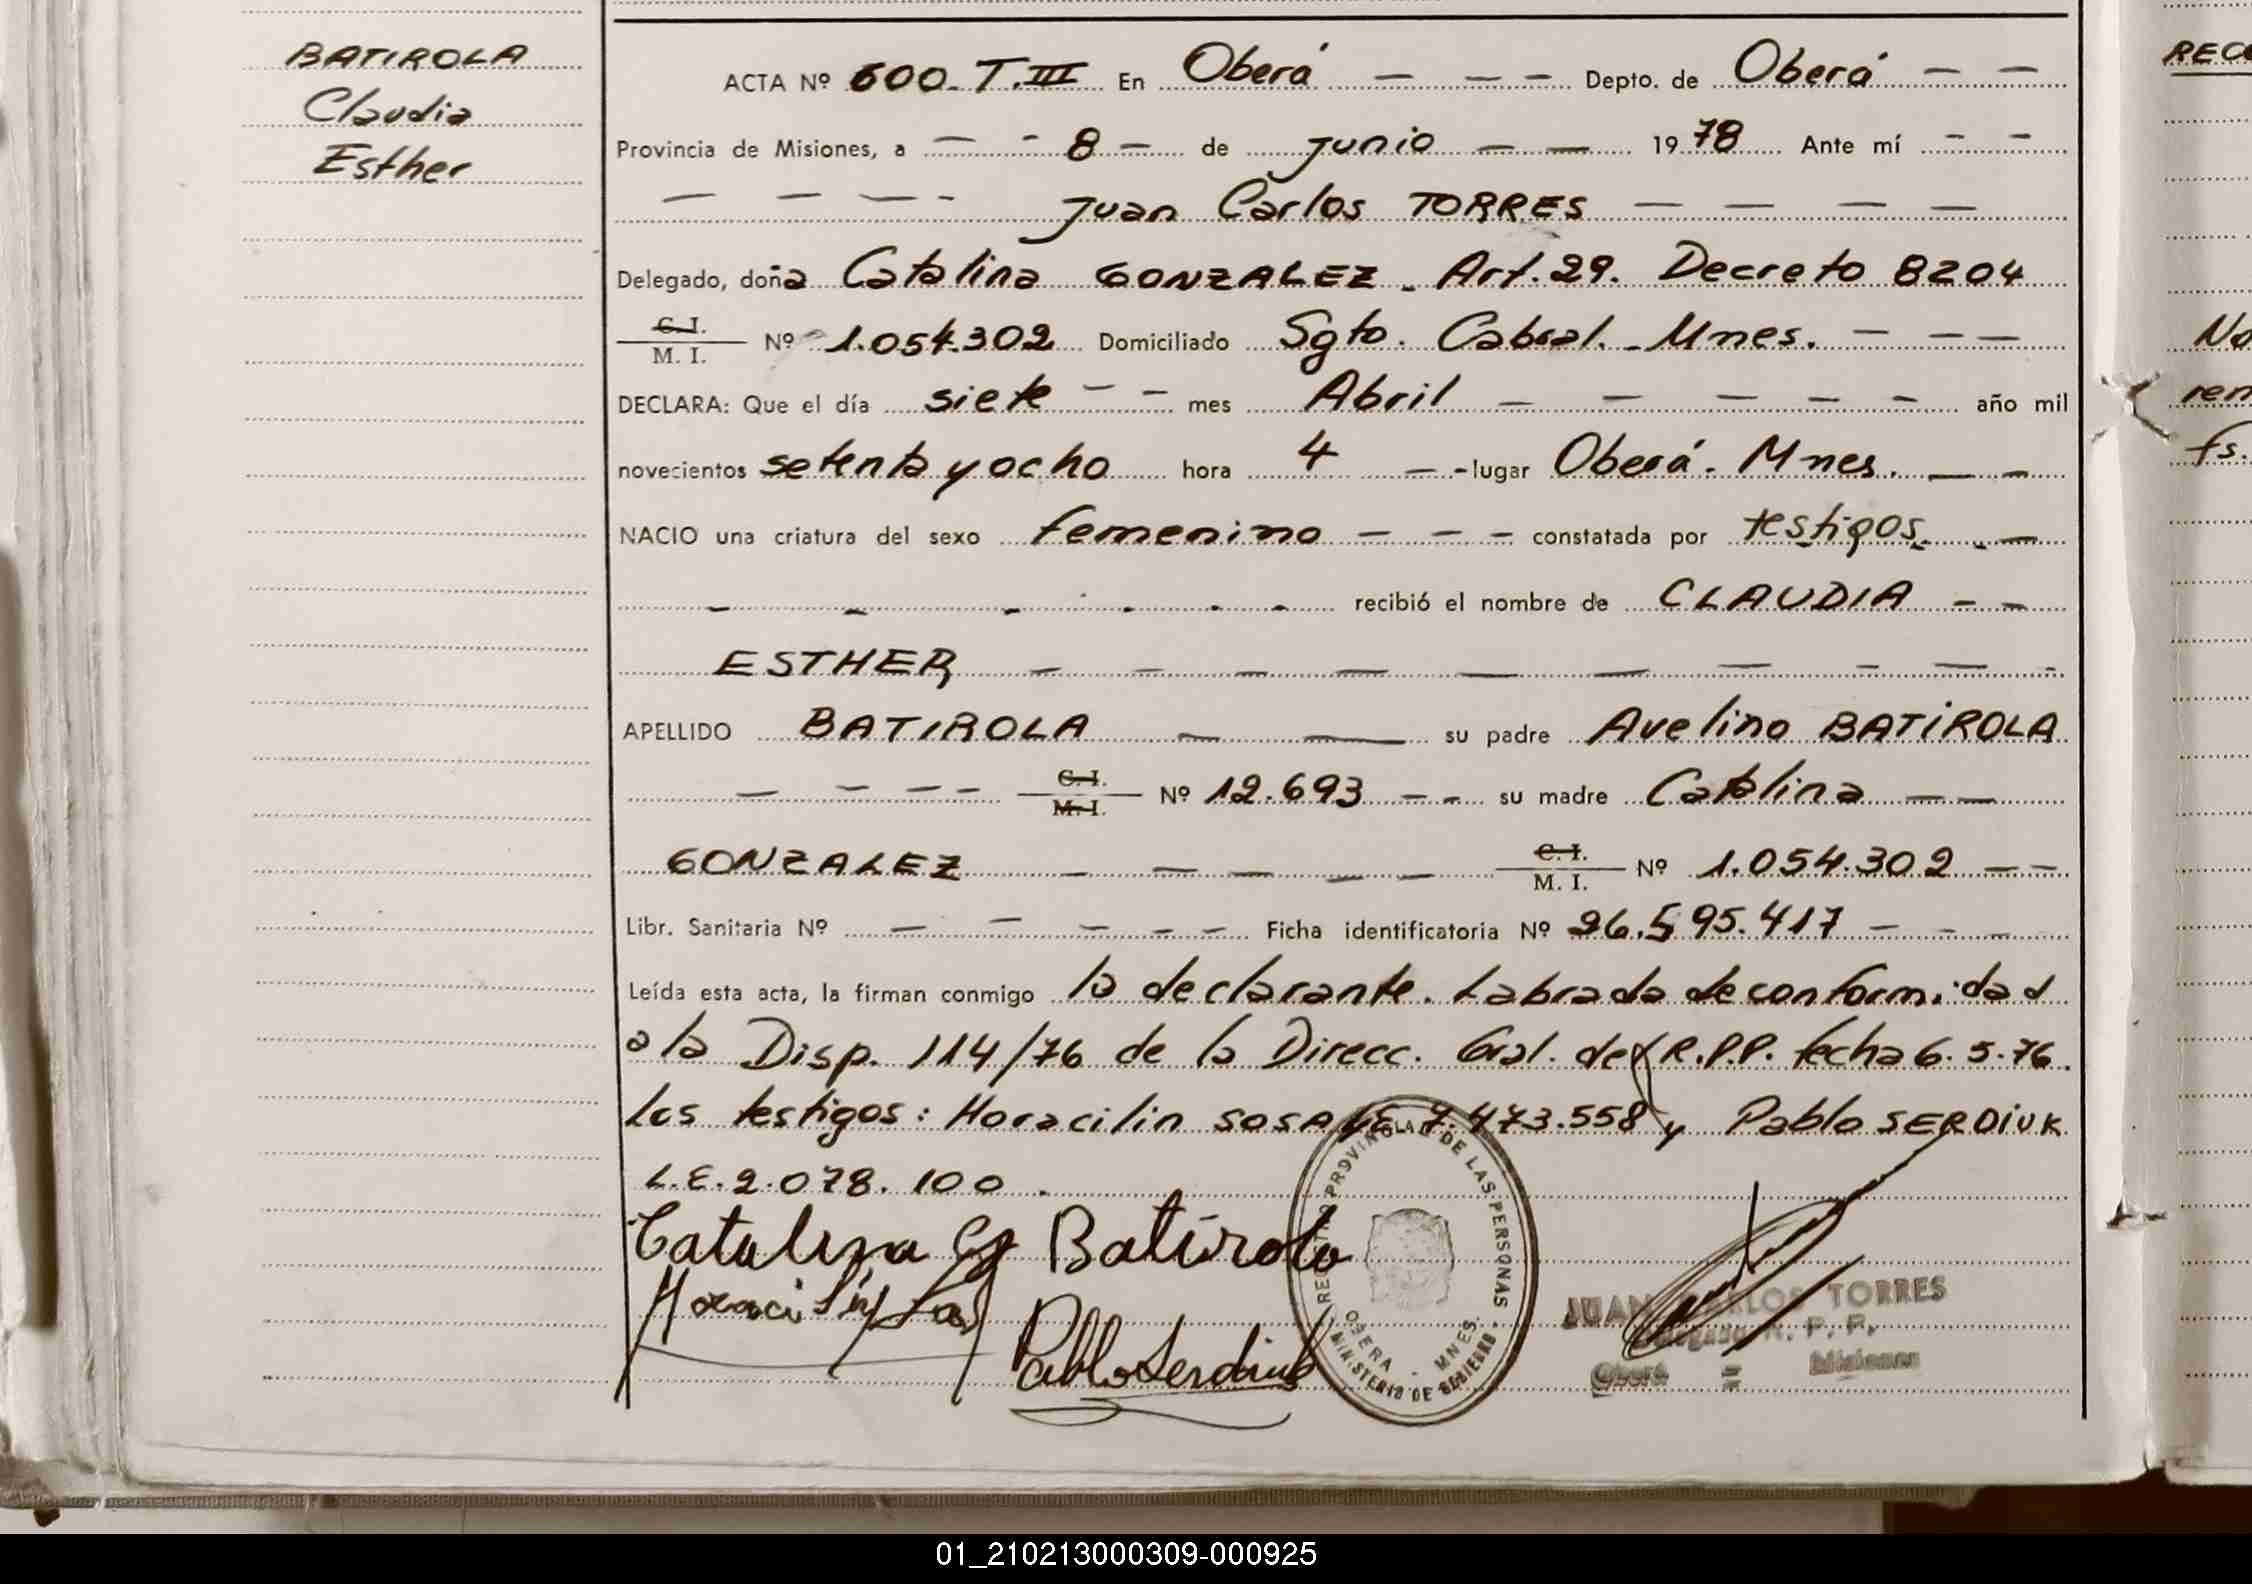 BATIROLA
Claudia
Esther
ACTA Nº 600. T.III En Oberá - - - - Depto. de Oberá - -
Provincia de Misiones, a - - 8 - de junio - - 1978 Ante mí - -
- - - - Juan Carlos TORRES - - - -
Delegado, doña Catalina GONZALEZ. Art. 29. Decreto 8204
C. I.
M. I. Nº 1.054.302 Domiciliado Sgto. Cabral. - Mnes. - - -
DECLARA: Que el día siete - - mes Abril - - - - - año mil
novecientos setenta y ocho hora 4 - - lugar Oberá. Mnes. - -
NACIO una criatura del sexo femenino - - - - constatada por testigos. - -
- - - - - - recibió el nombre de CLAUDIA - -
ESTHER - - - - - - - - - -
APELLIDO BATIROLA - - su padre Avelino BATIROLA
- - - - C. I.
M. I. Nº 12.693 - - su madre Catalina - -
GONZALEZ - - - - - C. I.
M. I. Nº 1.054.302 - -
Libr. Sanitaria Nº - - - - - Ficha identificatoria Nº 26.595.417 - - -
Leída esta acta, la firman conmigo la declarante. Labrada de conformidad
a la Disp. 114/76 de la Direcc. Gral. del R.P.P. fecha 6.5.76.
Los testigos: Horacilin SOSA LE 7.473.558 y Pablo SERDIUK
L.E. 2.078.100.
Catalina G Batirola
Horacilin Sosa
Pablo Serdiuk
REGISTRO PROVINCIAL DE LAS PERSONAS
OBERA - MNES.
MINISTERIO DE GOBIERNO
JUAN CARLOS TORRES
Delegado R. P. P.
Oberá = Misiones
RECO
No
ren
fs.
01_210213000309-000925